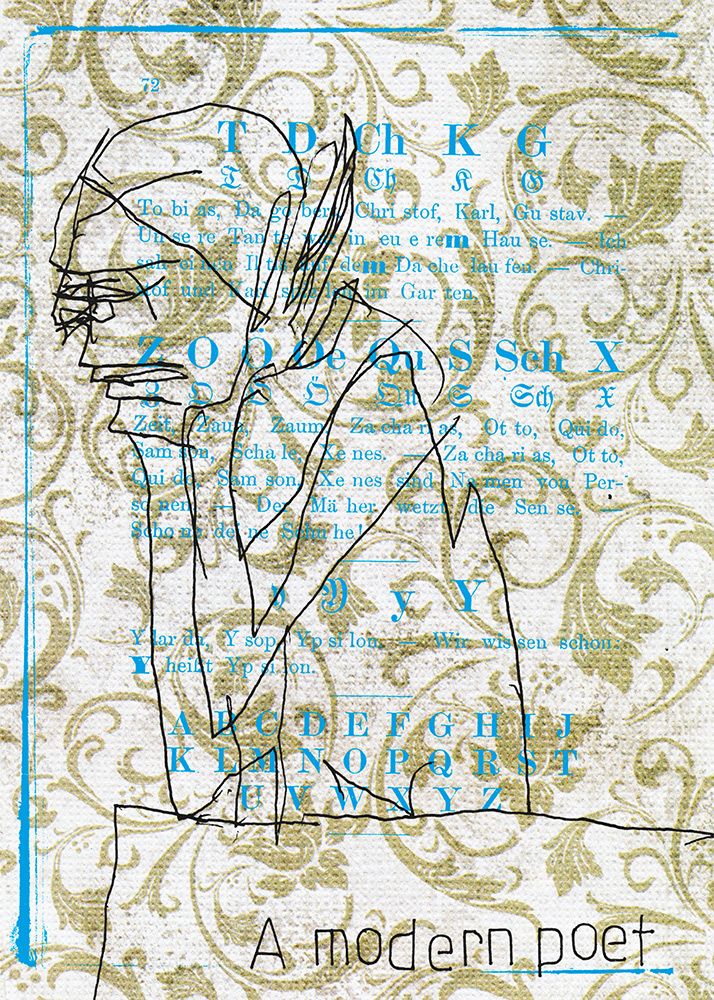 72
T D Ch K G
𝔗 𝔇 ℭ𝔥 𝔎 𝔊
To bi as, Da go bert, Chri stof, Karl, Gu stav. —
Un se re Tan te in eu e rem Hau se. — Ich
sah ei nen Il tis auf dem Da che lau fen. — Chri-
stof und Karl spie len im Gar ten.
Z O Ö Oe Qu S Sch X
ℨ 𝔒 𝔒 𝔒̈ 𝔔𝔲 𝔖 𝔖𝔠𝔥 𝔛
Zeit, Zaun, Zaum, Za cha ri as, Ot to, Qui do,
Sam son, Scha le, Xe nes. — Za cha ri as, Ot to,
Qui do, Sam son, Xe nes sind Na men von Per-
so nen. — Der Mä her wetzt die Sen se. —
Scho ne dei ne Schu he!
𝔶 𝔜 y Y
Y lar da, Y sop, Yp si lon. — Wir wis sen schon:
Y heißt Yp si lon.
A B C D E F G H I J
K L M N O P Q R S T
U V W X Y Z
A modern poet